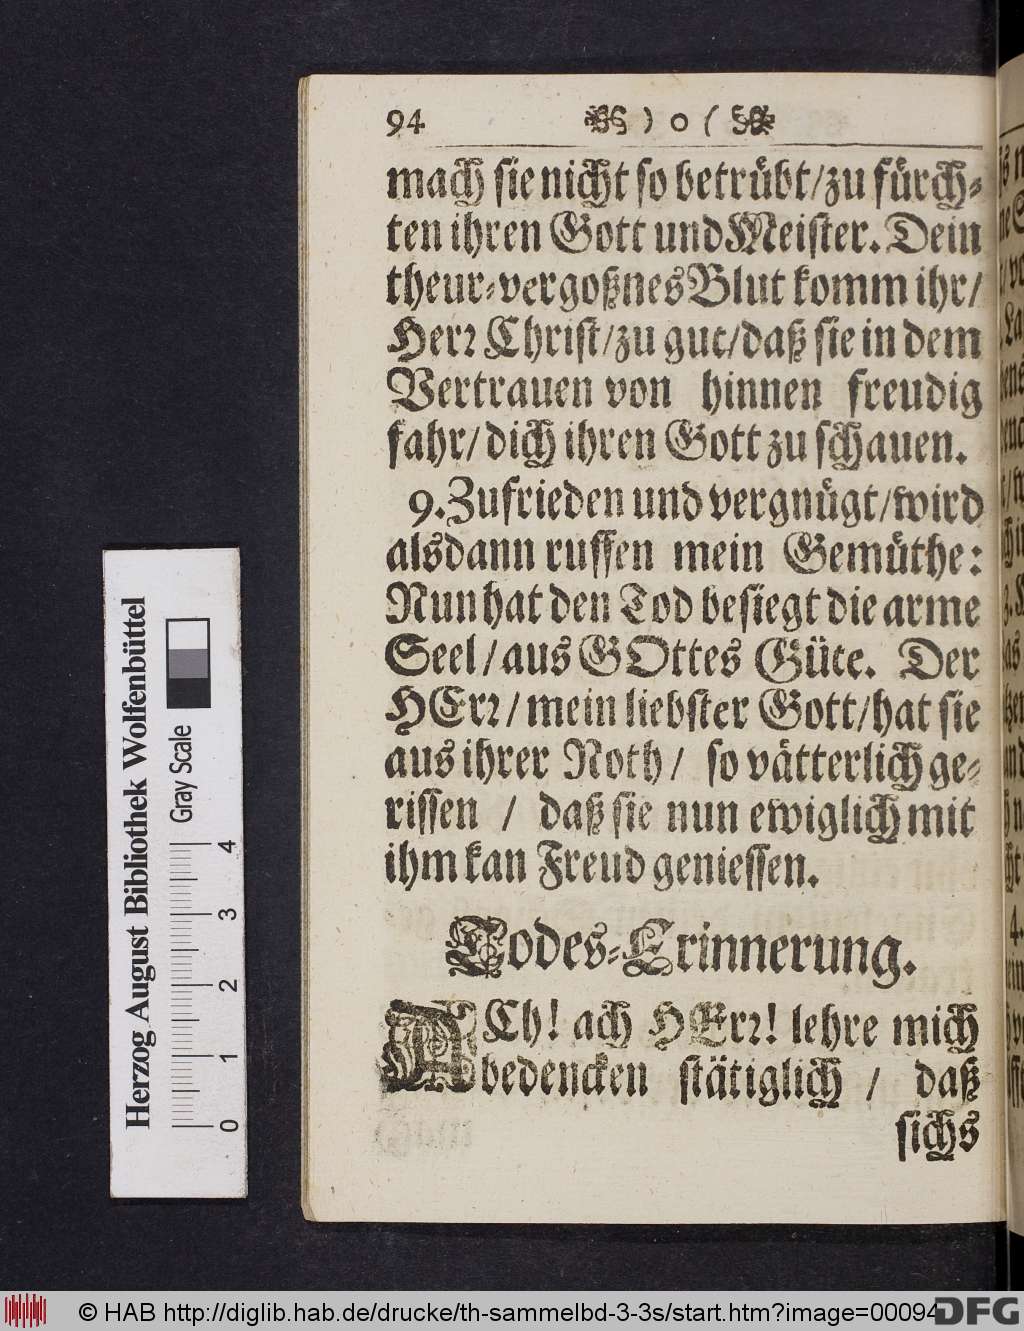 94 ) o (
mach sie nicht so betrübt/zu fürch-
ten ihren Gott und Meister. Dein
theur-vergoßnes Blut komm ihr/
Herr Christ/zu gut/daß sie in dem
Vertrauen von hinnen freudig
fahr/dich ihren Gott zu schauen.
9. Zufrieden und vergnügt/wird
alsdann ruffen mein Gemüthe:
Nun hat den Tod besiegt die arme
Seel/aus GOttes Güte. Der
HErr/mein liebster Gott/hat sie
aus ihrer Noth/ so vätterlich ge-
rissen / daß sie nun ewiglich mit
ihm kan Freud geniessen.
Todes-Erinnerung.
ACh! ach HErr! lehre mich
bedencken stätiglich / daß
sichs
Herzog August Bibliothek Wolfenbüttel
Gray Scale
0 1 2 3 4
© HAB http://diglib.hab.de/drucke/th-sammelbd-3-3s/start.htm?image=00094
DFG